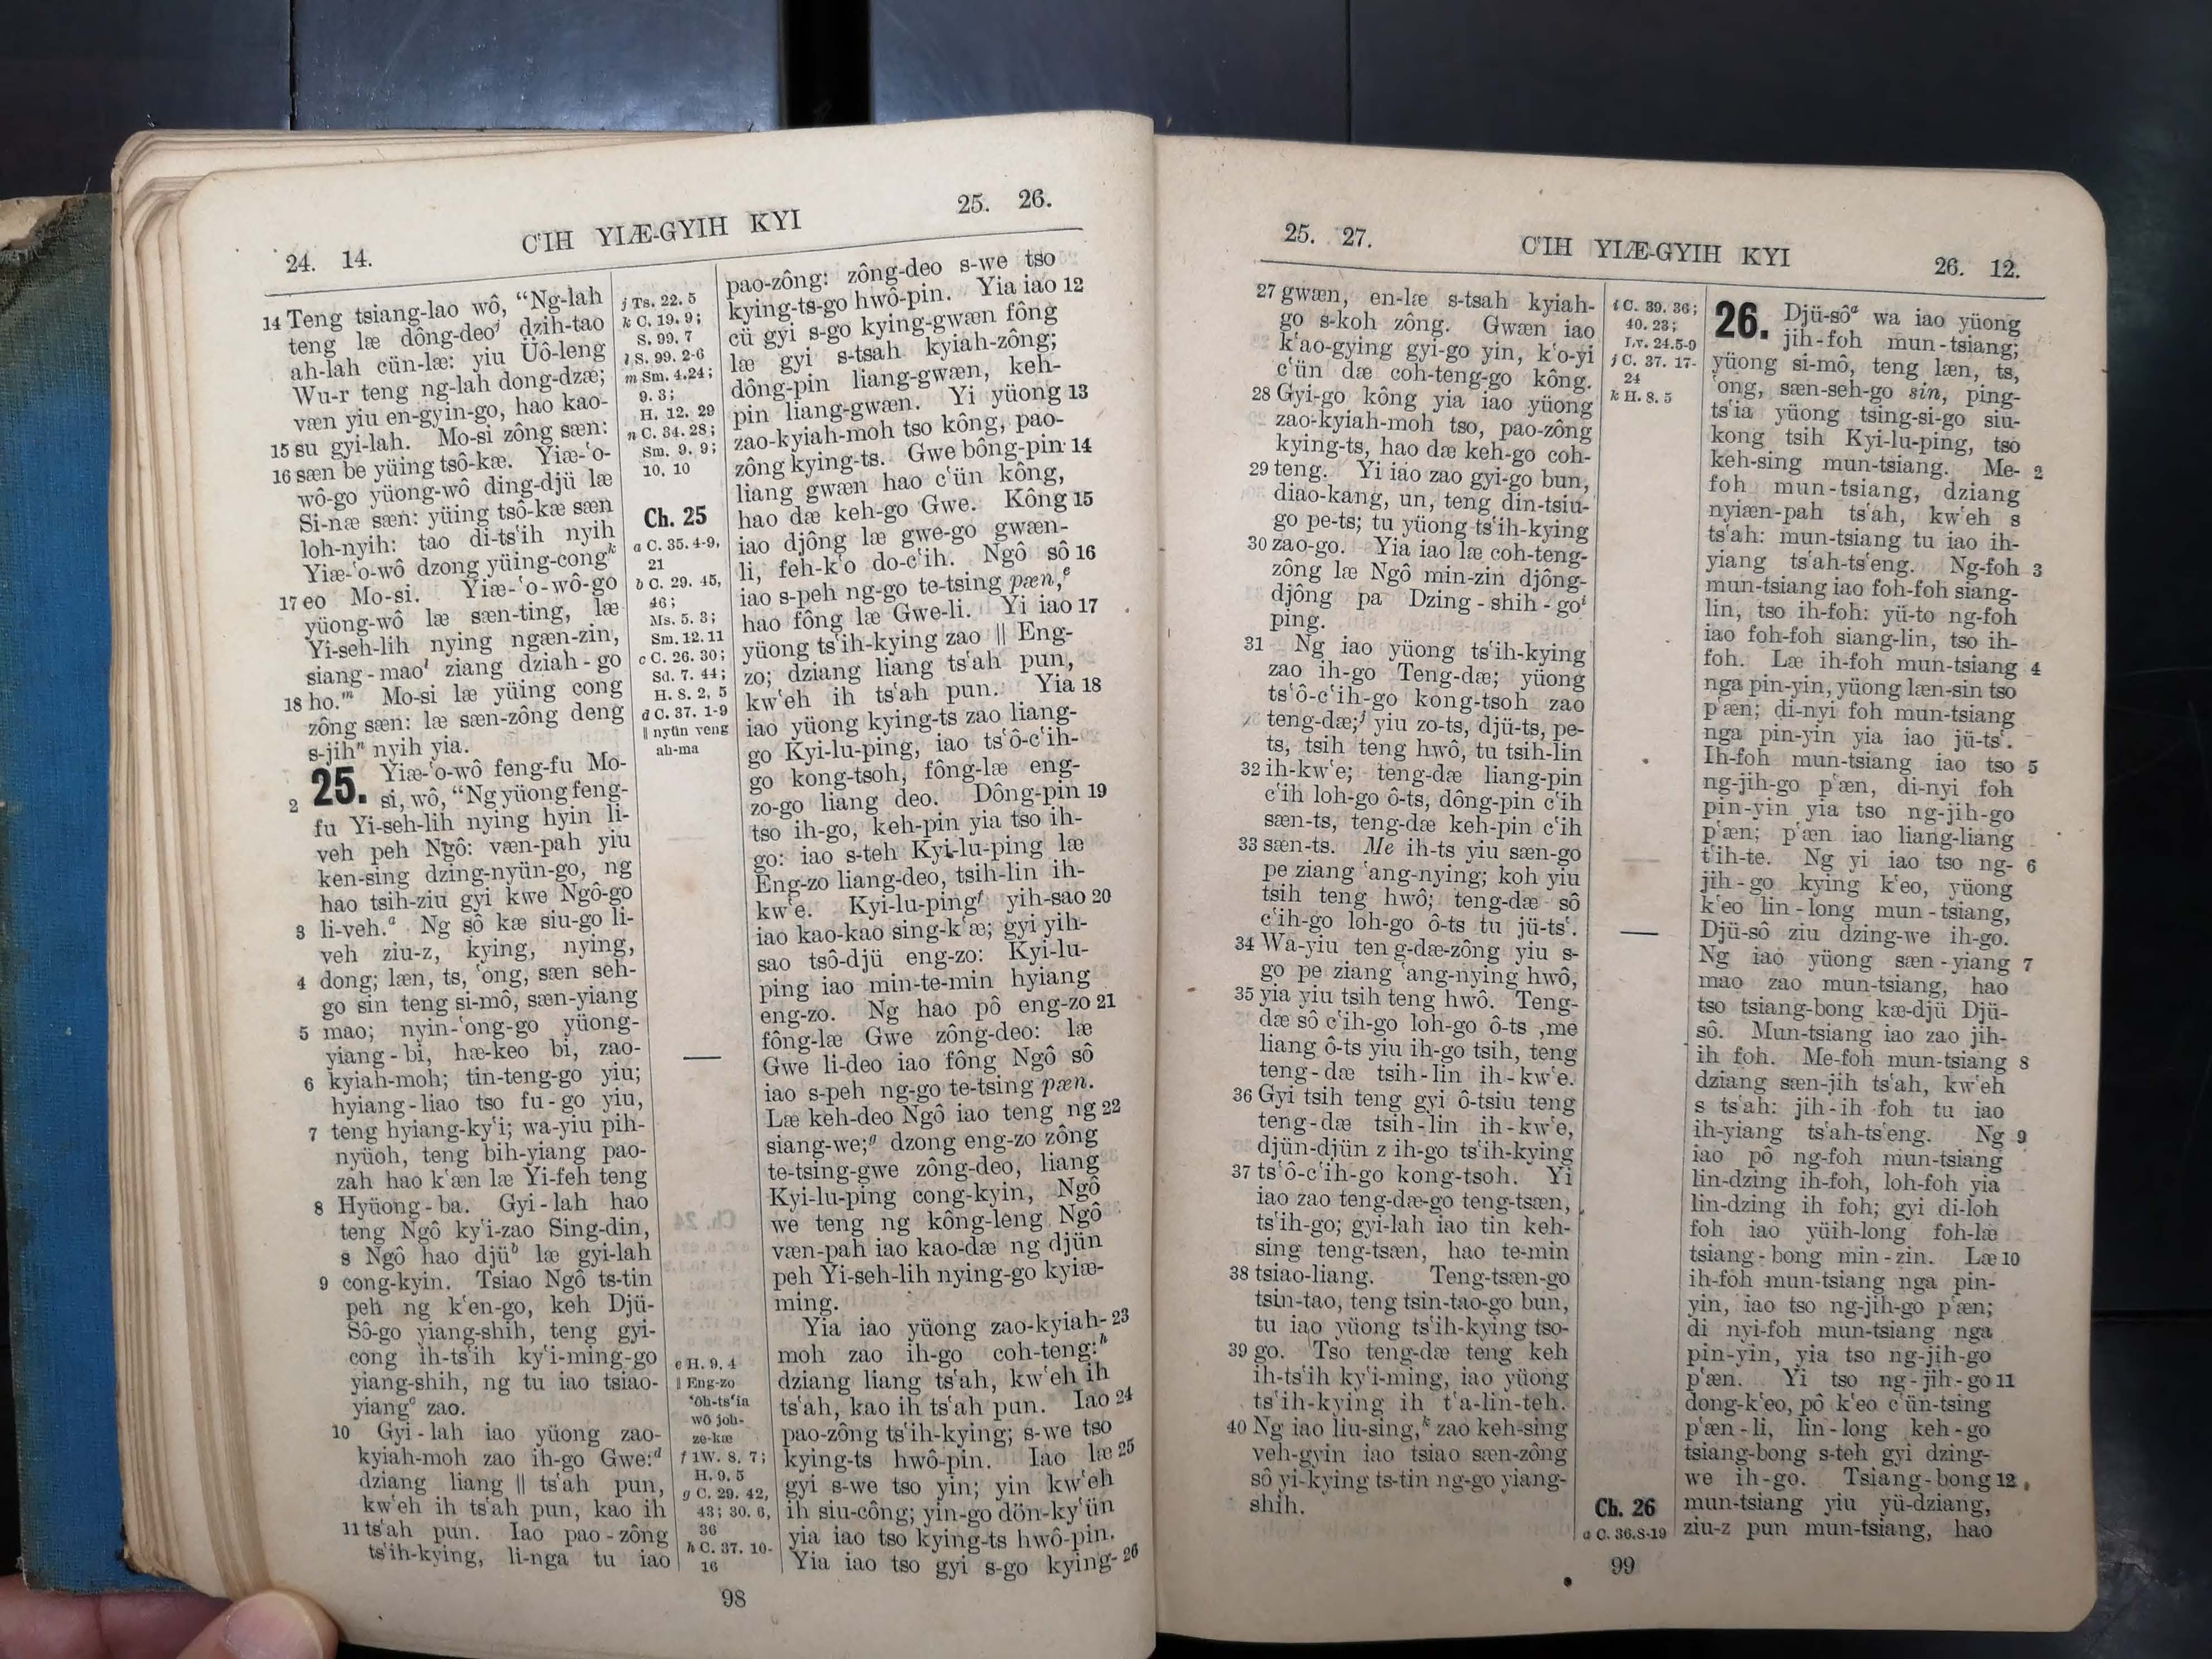 24. 14.
C‘IH YIÆ-GYIH KYI
25. 26.
14 Teng tsiang-lao wô, “Ng-lah
teng læ dông-deoʲ dzih-tao
ah-lah cün-læ: yiu Üô-leng
Wu-r teng ng-lah dong-dzæ;
væn yiu en-gyin-go, hao kao-
15 su gyi-lah. Mo-si zông sæn:
16 sæn be yüing tsô-kæ. Yiæ-‘o-
wô-go yüong-wô ding-djü læ
Si-næ sæn: yüing tsô-kæ sæn
loh-nyih: tao di-ts‘ih nyih
Yiæ-‘o-wô dzong yüing-congᵏ
17 eo Mo-si. Yiæ-‘o-wô-go
yüong-wô læ sæn-ting, læ
Yi-seh-lih nying ngæn-zin,
siang-maoˡ ziang dziah-go
18 ho.ᵐ Mo-si læ yüing cong
zông sæn: læ sæn-zông deng
s-jihⁿ nyih yia.
25. Yiæ-‘o-wô feng-fu Mo-
2 si, wô, “Ng yüong feng-
fu Yi-seh-lih nying hyin li-
veh peh Ngô: væn-pah yiu
ken-sing dzing-nyün-go, ng
hao tsih-ziu gyi kwe Ngô-go
3 li-veh.ᵃ Ng sô kæ siu-go li-
veh ziu-z, kying, nying,
4 dong; læn, ts, ‘ong, sæn seh-
go sin teng si-mô, sæn-yiang
5 mao; nyin-‘ong-go yüong-
yiang-bi, hæ-keo bi, zao-
6 kyiah-moh; tin-teng-go yiu;
hyiang-liao tso fu-go yiu,
7 teng hyiang-ky‘i; wa-yiu pih-
nyüoh, teng bih-yiang pao-
zah hao k‘æn læ Yi-feh teng
8 Hyüong-ba. Gyi-lah hao
teng Ngô ky‘i-zao Sing-din,
s Ngô hao djüᵇ læ gyi-lah
9 cong-kyin. Tsiao Ngô ts-tin
peh ng k‘en-go, keh Djü-
Sô-go yiang-shih, teng gyi-
cong ih-ts‘ih ky‘i-ming-go
yiang-shih, ng tu iao tsiao-
yiangᶜ zao.
10 Gyi-lah iao yüong zao-
kyiah-moh zao ih-go Gwe:ᵈ
dziang liang ‖ ts‘ah pun,
kw‘eh ih ts‘ah pun, kao ih
11 ts‘ah pun. Iao pao-zông
ts‘ih-kying, li-nga tu iao
j Ts. 22. 5
k C. 19. 9;
S. 99. 7
l S. 99. 2-6
m Sm. 4.24;
9. 3;
H. 12. 29
n C. 34. 28;
Sm. 9. 9;
10. 10
Ch. 25
a C. 35. 4-9,
21
b C. 29. 45,
46;
Ms. 5. 3;
Sm. 12. 11
c C. 26. 30;
Sd. 7. 44;
H. 8. 2, 5
d C. 37. 1-9
‖ nyün veng
ah-ma
e H. 9. 4
‖ Eng-zo
‘ôh-ts‘ia
wô joh-
ze-kæ
f 1W. 8. 7;
H. 9. 5
g C. 29. 42,
43; 30. 6,
36
h C. 37. 10-
16
pao-zông: zông-deo s-we tso
kying-ts-go hwô-pin. Yia iao 12
cü gyi s-go kying-gwæn fông
læ gyi s-tsah kyiah-zông;
dông-pin liang-gwæn, keh-
pin liang-gwæn. Yi yüong 13
zao-kyiah-moh tso kông, pao-
zông kying-ts. Gwe bông-pin 14
liang gwæn hao c‘ün kông,
hao dæ keh-go Gwe. Kông 15
iao djông læ gwe-go gwæn-
li, feh-k‘o do-c‘ih. Ngô sô 16
iao s-peh ng-go te-tsing pæn,ᵉ
hao fông læ Gwe-li. Yi iao 17
yüong ts‘ih-kying zao ‖ Eng-
zo; dziang liang ts‘ah pun,
kw‘eh ih ts‘ah pun. Yia 18
iao yüong kying-ts zao liang-
go Kyi-lu-ping, iao ts‘ô-c‘ih-
go kong-tsoh, fông-læ eng-
zo-go liang deo. Dông-pin 19
tso ih-go, keh-pin yia tso ih-
go: iao s-teh Kyi-lu-ping læ
Eng-zo liang-deo, tsih-lin ih-
kw‘e. Kyi-lu-pingᶠ yih-sao 20
iao kao-kao sing-k‘æ; gyi yih-
sao tsô-djü eng-zo: Kyi-lu-
ping iao min-te-min hyiang
eng-zo. Ng hao pô eng-zo 21
fông-læ Gwe zông-deo: læ
Gwe li-deo iao fông Ngô sô
iao s-peh ng-go te-tsing pæn.
Læ keh-deo Ngô iao teng ng 22
siang-we;ᵍ dzong eng-zo zông
te-tsing-gwe zông-deo, liang
Kyi-lu-ping cong-kyin, Ngô
we teng ng kông-leng Ngô
væn-pah iao kao-dæ ng djün
peh Yi-seh-lih nying-go kyiæ-
ming.
Yia iao yüong zao-kyiah- 23
moh zao ih-go coh-teng:ʰ
dziang liang ts‘ah, kw‘eh ih
ts‘ah, kao ih ts‘ah pun. Iao 24
pao-zông ts‘ih-kying; s-we tso
kying-ts hwô-pin. Iao læ 25
gyi s-we tso yin; yin kw‘eh
ih siu-công; yin-go dön-ky‘ün
yia iao tso kying-ts hwô-pin.
Yia iao tso gyi s-go kying- 26
98
25. 27.
C‘IH YIÆ-GYIH KYI
26. 12.
27 gwæn, en-læ s-tsah kyiah-
go s-koh zông. Gwæn iao
k‘ao-gying gyi-go yin, k‘o-yi
c‘ün dæ coh-teng-go kông.
28 Gyi-go kông yia iao yüong
zao-kyiah-moh tso, pao-zông
kying-ts, hao dæ keh-go coh-
29 teng. Yi iao zao gyi-go bun,
diao-kang, un, teng din-tsiu-
go pe-ts; tu yüong ts‘ih-kying
30 zao-go. Yia iao læ coh-teng-
zông læ Ngô min-zin djông-
djông pa Dzing-shih-goⁱ
ping.
31 Ng iao yüong ts‘ih-kying
zao ih-go Teng-dæ; yüong
ts‘ô-c‘ih-go kong-tsoh zao
teng-dæ;ʲ yiu zo-ts, djü-ts, pe-
ts, tsih teng hwô, tu tsih-lin
32 ih-kw‘e; teng-dæ liang-pin
c‘ih loh-go ô-ts, dông-pin c‘ih
sæn-ts, teng-dæ keh-pin c‘ih
33 sæn-ts. Me ih-ts yiu sæn-go
pe ziang ‘ang-nying; koh yiu
tsih teng hwô; teng-dæ sô
c‘ih-go loh-go ô-ts tu jü-ts‘.
34 Wa-yiu ten g-dæ-zông yiu s-
go pe ziang ‘ang-nying hwô,
35 yia yiu tsih teng hwô. Teng-
dæ sô c‘ih-go loh-go ô-ts ,me
liang ô-ts yiu ih-go tsih, teng
teng-dæ tsih-lin ih-kw‘e.
36 Gyi tsih teng gyi ô-tsiu teng
teng-dæ tsih-lin ih-kw‘e,
djün-djün z ih-go ts‘ih-kying
37 ts‘ô-c‘ih-go kong-tsoh. Yi
iao zao teng-dæ-go teng-tsæn,
ts‘ih-go; gyi-lah iao tin keh-
sing teng-tsæn, hao te-min
38 tsiao-liang. Teng-tsæn-go
tsin-tao, teng tsin-tao-go bun,
tu iao yüong ts‘ih-kying tso-
39 go. Tso teng-dæ teng keh
ih-ts‘ih ky‘i-ming, iao yüong
ts‘ih-kying ih t‘a-lin-teh.
40 Ng iao liu-sing,ᵏ zao keh-sing
veh-gyin iao tsiao sæn-zông
sô yi-kying ts-tin ng-go yiang-
shih.
i C. 39. 36;
40. 23;
Lv. 24.5-9
j C. 37. 17-
24
k H. 8. 5
Ch. 26
a C. 36.8-19
26. Djü-sôᵃ wa iao yüong
jih-foh mun-tsiang;
yüong si-mô, teng læn, ts,
‘ong, sæn-seh-go sin, ping-
ts‘ia yüong tsing-si-go siu-
kong tsih Kyi-lu-ping, tso
keh-sing mun-tsiang. Me- 2
foh mun-tsiang, dziang
nyiæn-pah ts‘ah, kw‘eh s
ts‘ah: mun-tsiang tu iao ih-
yiang ts‘ah-ts‘eng. Ng-foh 3
mun-tsiang iao foh-foh siang-
lin, tso ih-foh: yü-to ng-foh
iao foh-foh siang-lin, tso ih-
foh. Læ ih-foh mun-tsiang 4
nga pin-yin, yüong læn-sin tso
p‘æn; di-nyi foh mun-tsiang
nga pin-yin yia iao jü-ts‘.
Ih-foh mun-tsiang iao tso 5
ng-jih-go p‘æn, di-nyi foh
pin-yin yia tso ng-jih-go
p‘æn; p‘æn iao liang-liang
t‘ih-te. Ng yi iao tso ng- 6
jih-go kying k‘eo, yüong
k‘eo lin-long mun-tsiang,
Djü-sô ziu dzing-we ih-go.
Ng iao yüong sæn-yiang 7
mao zao mun-tsiang, hao
tso tsiang-bong kæ-djü Djü-
sô. Mun-tsiang iao zao jih-
ih foh. Me-foh mun-tsiang 8
dziang sæn-jih ts‘ah, kw‘eh
s ts‘ah: jih-ih foh tu iao
ih-yiang ts‘ah-ts‘eng. Ng 9
iao pô ng-foh mun-tsiang
lin-dzing ih-foh, loh-foh yia
lin-dzing ih foh; gyi di-loh
foh iao yüih-long foh-læ
tsiang-bong min-zin. Læ 10
ih-foh mun-tsiang nga pin-
yin, iao tso ng-jih-go p‘æn;
di nyi-foh mun-tsiang nga
pin-yin, yia tso ng-jih-go
p‘æn. Yi tso ng-jih-go 11
dong-k‘eo, pô k‘eo c‘ün-tsing
p‘æn-li, lin-long keh-go
tsiang-bong s-teh gyi dzing-
we ih-go. Tsiang-bong 12
mun-tsiang yiu yü-dziang,
ziu-z pun mun-tsiang, hao
99